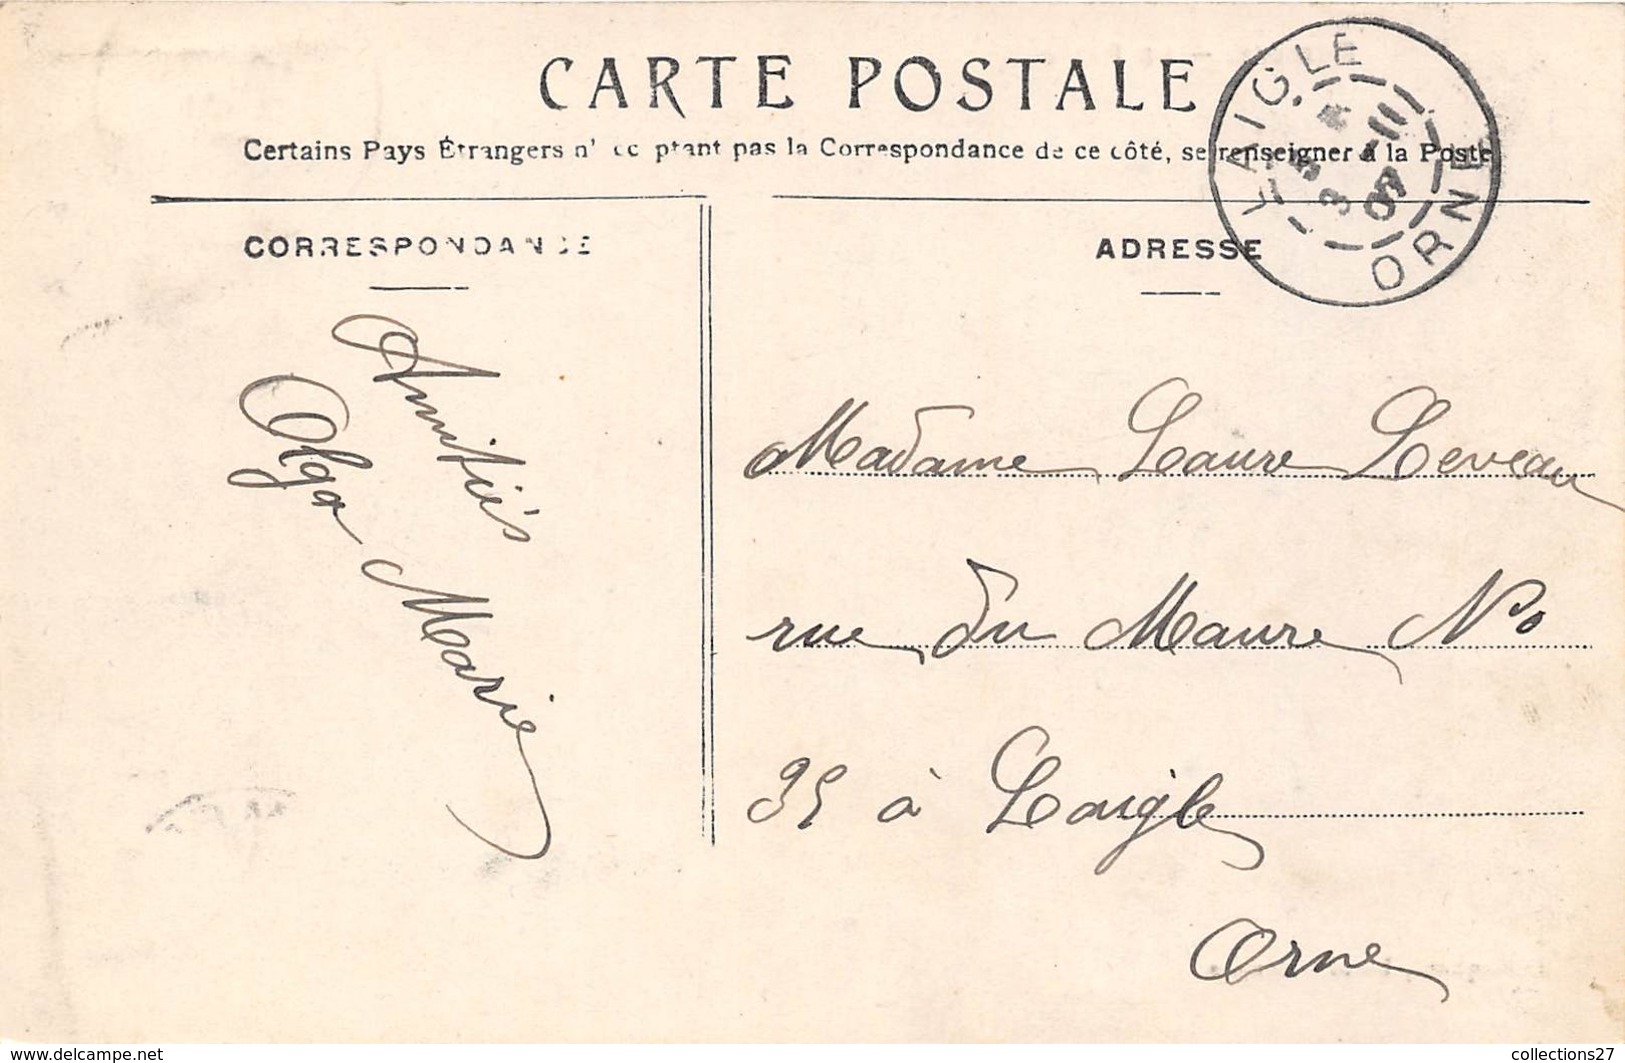 CARTE POSTALE
Certains Pays Étrangers n' cc ptant pas la Correspondance de ce côté, se renseigner à la Poste
CORRESPONDANCE
ADRESSE
LAIGLE
ORNE
3 -III
07
Amitiés
Olga Marie
Madame Laure Leveau
rue du Maure No
35 à Laigle
Orne
www.delcampe.net
collections27